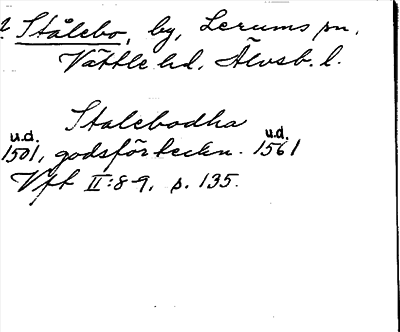 Stålebo, by, Lerums sn,
Vättle hd, Älvsb. l.
Stalebodha
u.d. u.d.
1501, godsförteckn. 1561
Vft II:8-9, s. 135.